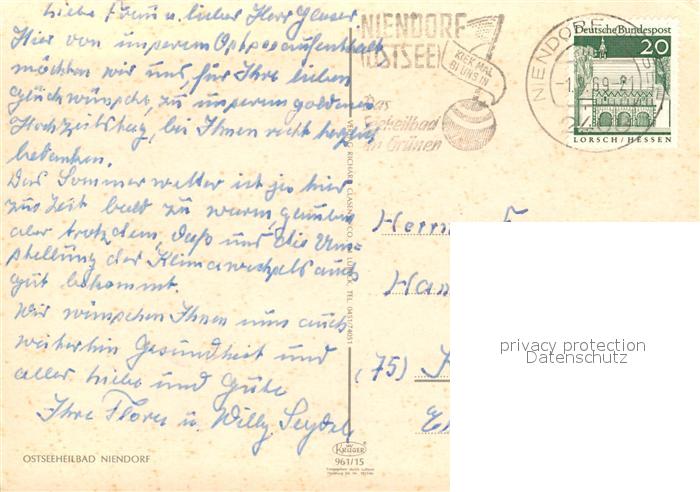 Liebe Frau u. lieber Herr Glaser
Hier von unserem Ostseeaufenthalt
möchten wir uns für Ihre lieben
Glückwünsche, zu unserem goldenen
Hochzeitstag, bei Ihnen recht herzlich
bedanken.
Das Sommerwetter ist ja hier
zur Zeit bald zu warm,
aber trotzdem, daß uns die Um-
stellung des Klimawechsels auch
gut bekommt.
Wir wünschen Ihnen nun auch
weiterhin Gesundheit und
alles Liebe und Gute
Ihre Flora u. Willy Seydel
OSTSEEHEILBAD NIENDORF
NIENDORF
(OSTSEE)
KIEK MAL
BI UNS IN
Das
Seeheilbad
im Grünen
NIENDORF
69-21
2408
Deutsche Bundespost
20
LORSCH/HESSEN
VERLAG RICHARD CLASEN CO. LÜBECK, TEL. 0451/74051
KRÜGER
961/15
Herrn
Han
(75)
privacy protection
Datenschutz